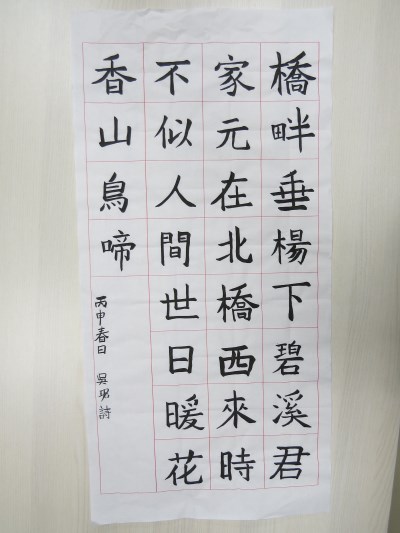 橋畔垂楊下碧溪君
家元在北橋西來時
不似人間世日暖花
香山鳥啼
丙申春日 吳玏詩